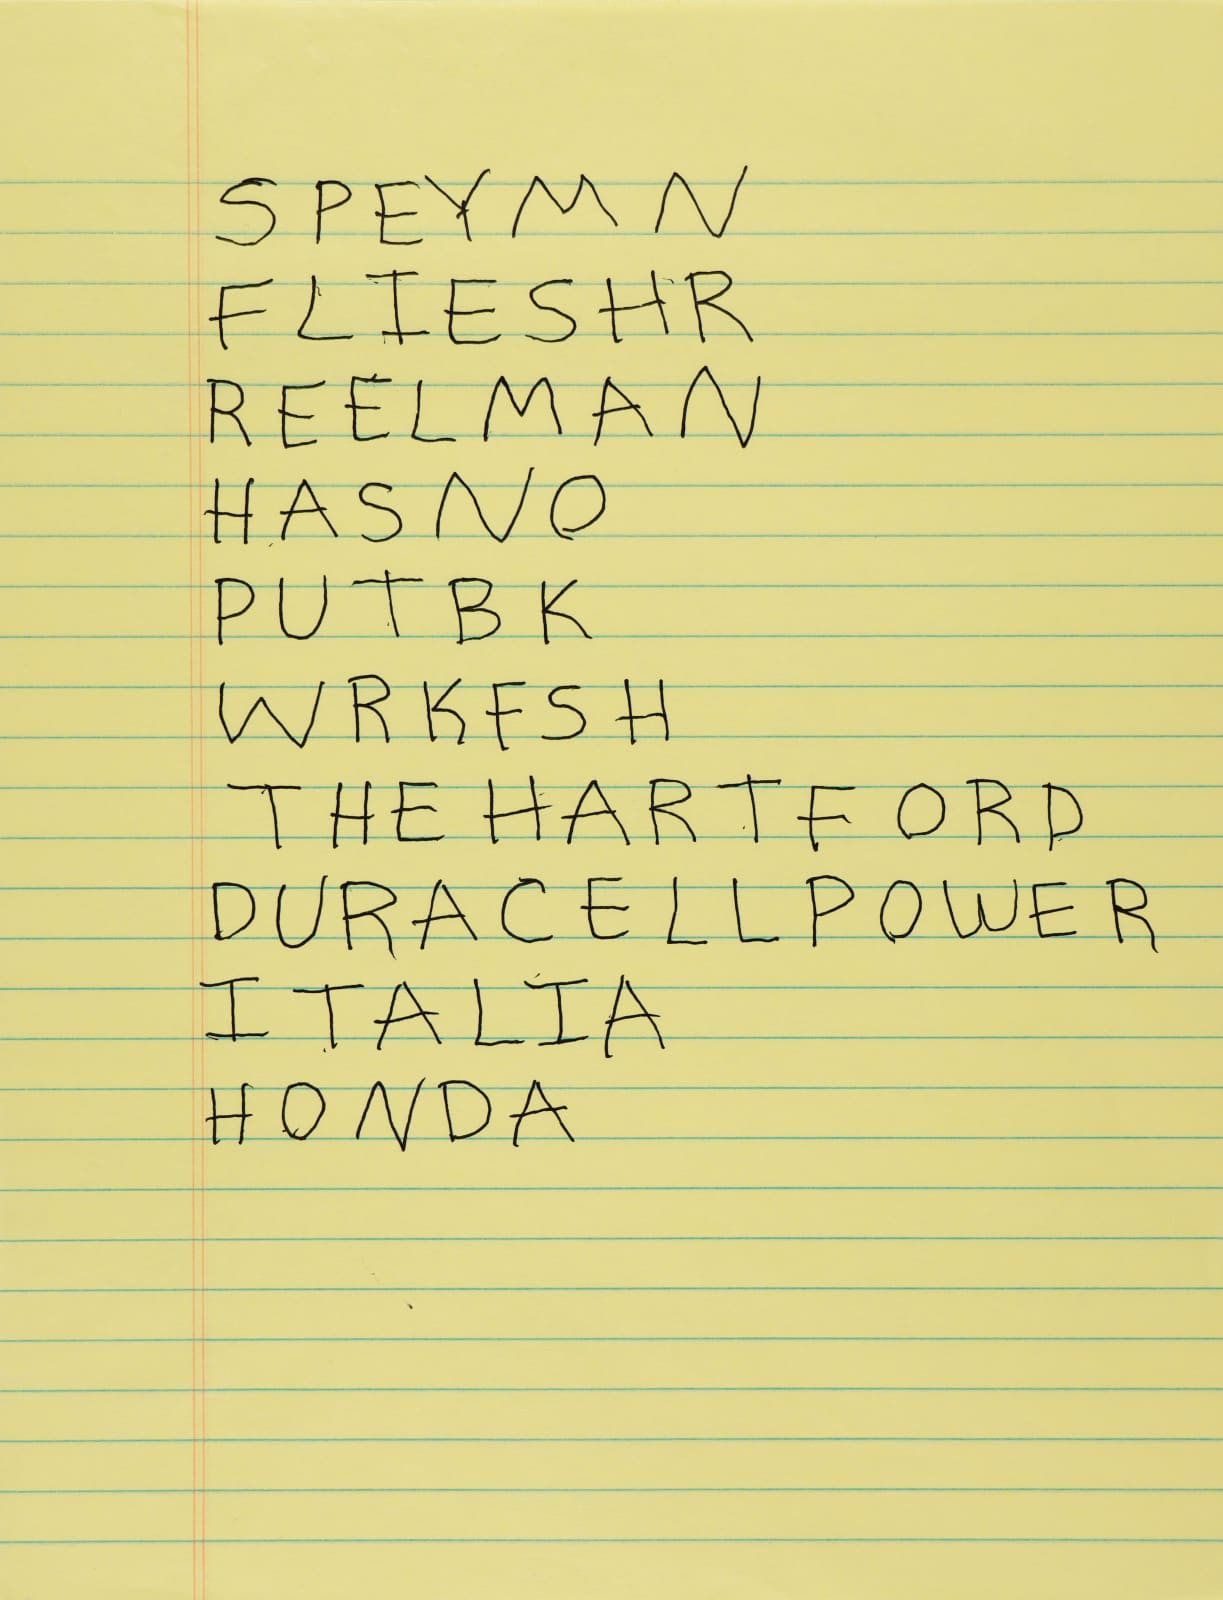 SPEYMN
FLIESHR
REELMAN
HASNO
PUTBK
WRKFSH
THEHARTFORD
DURACELLPOWER
ITALIA
HONDA